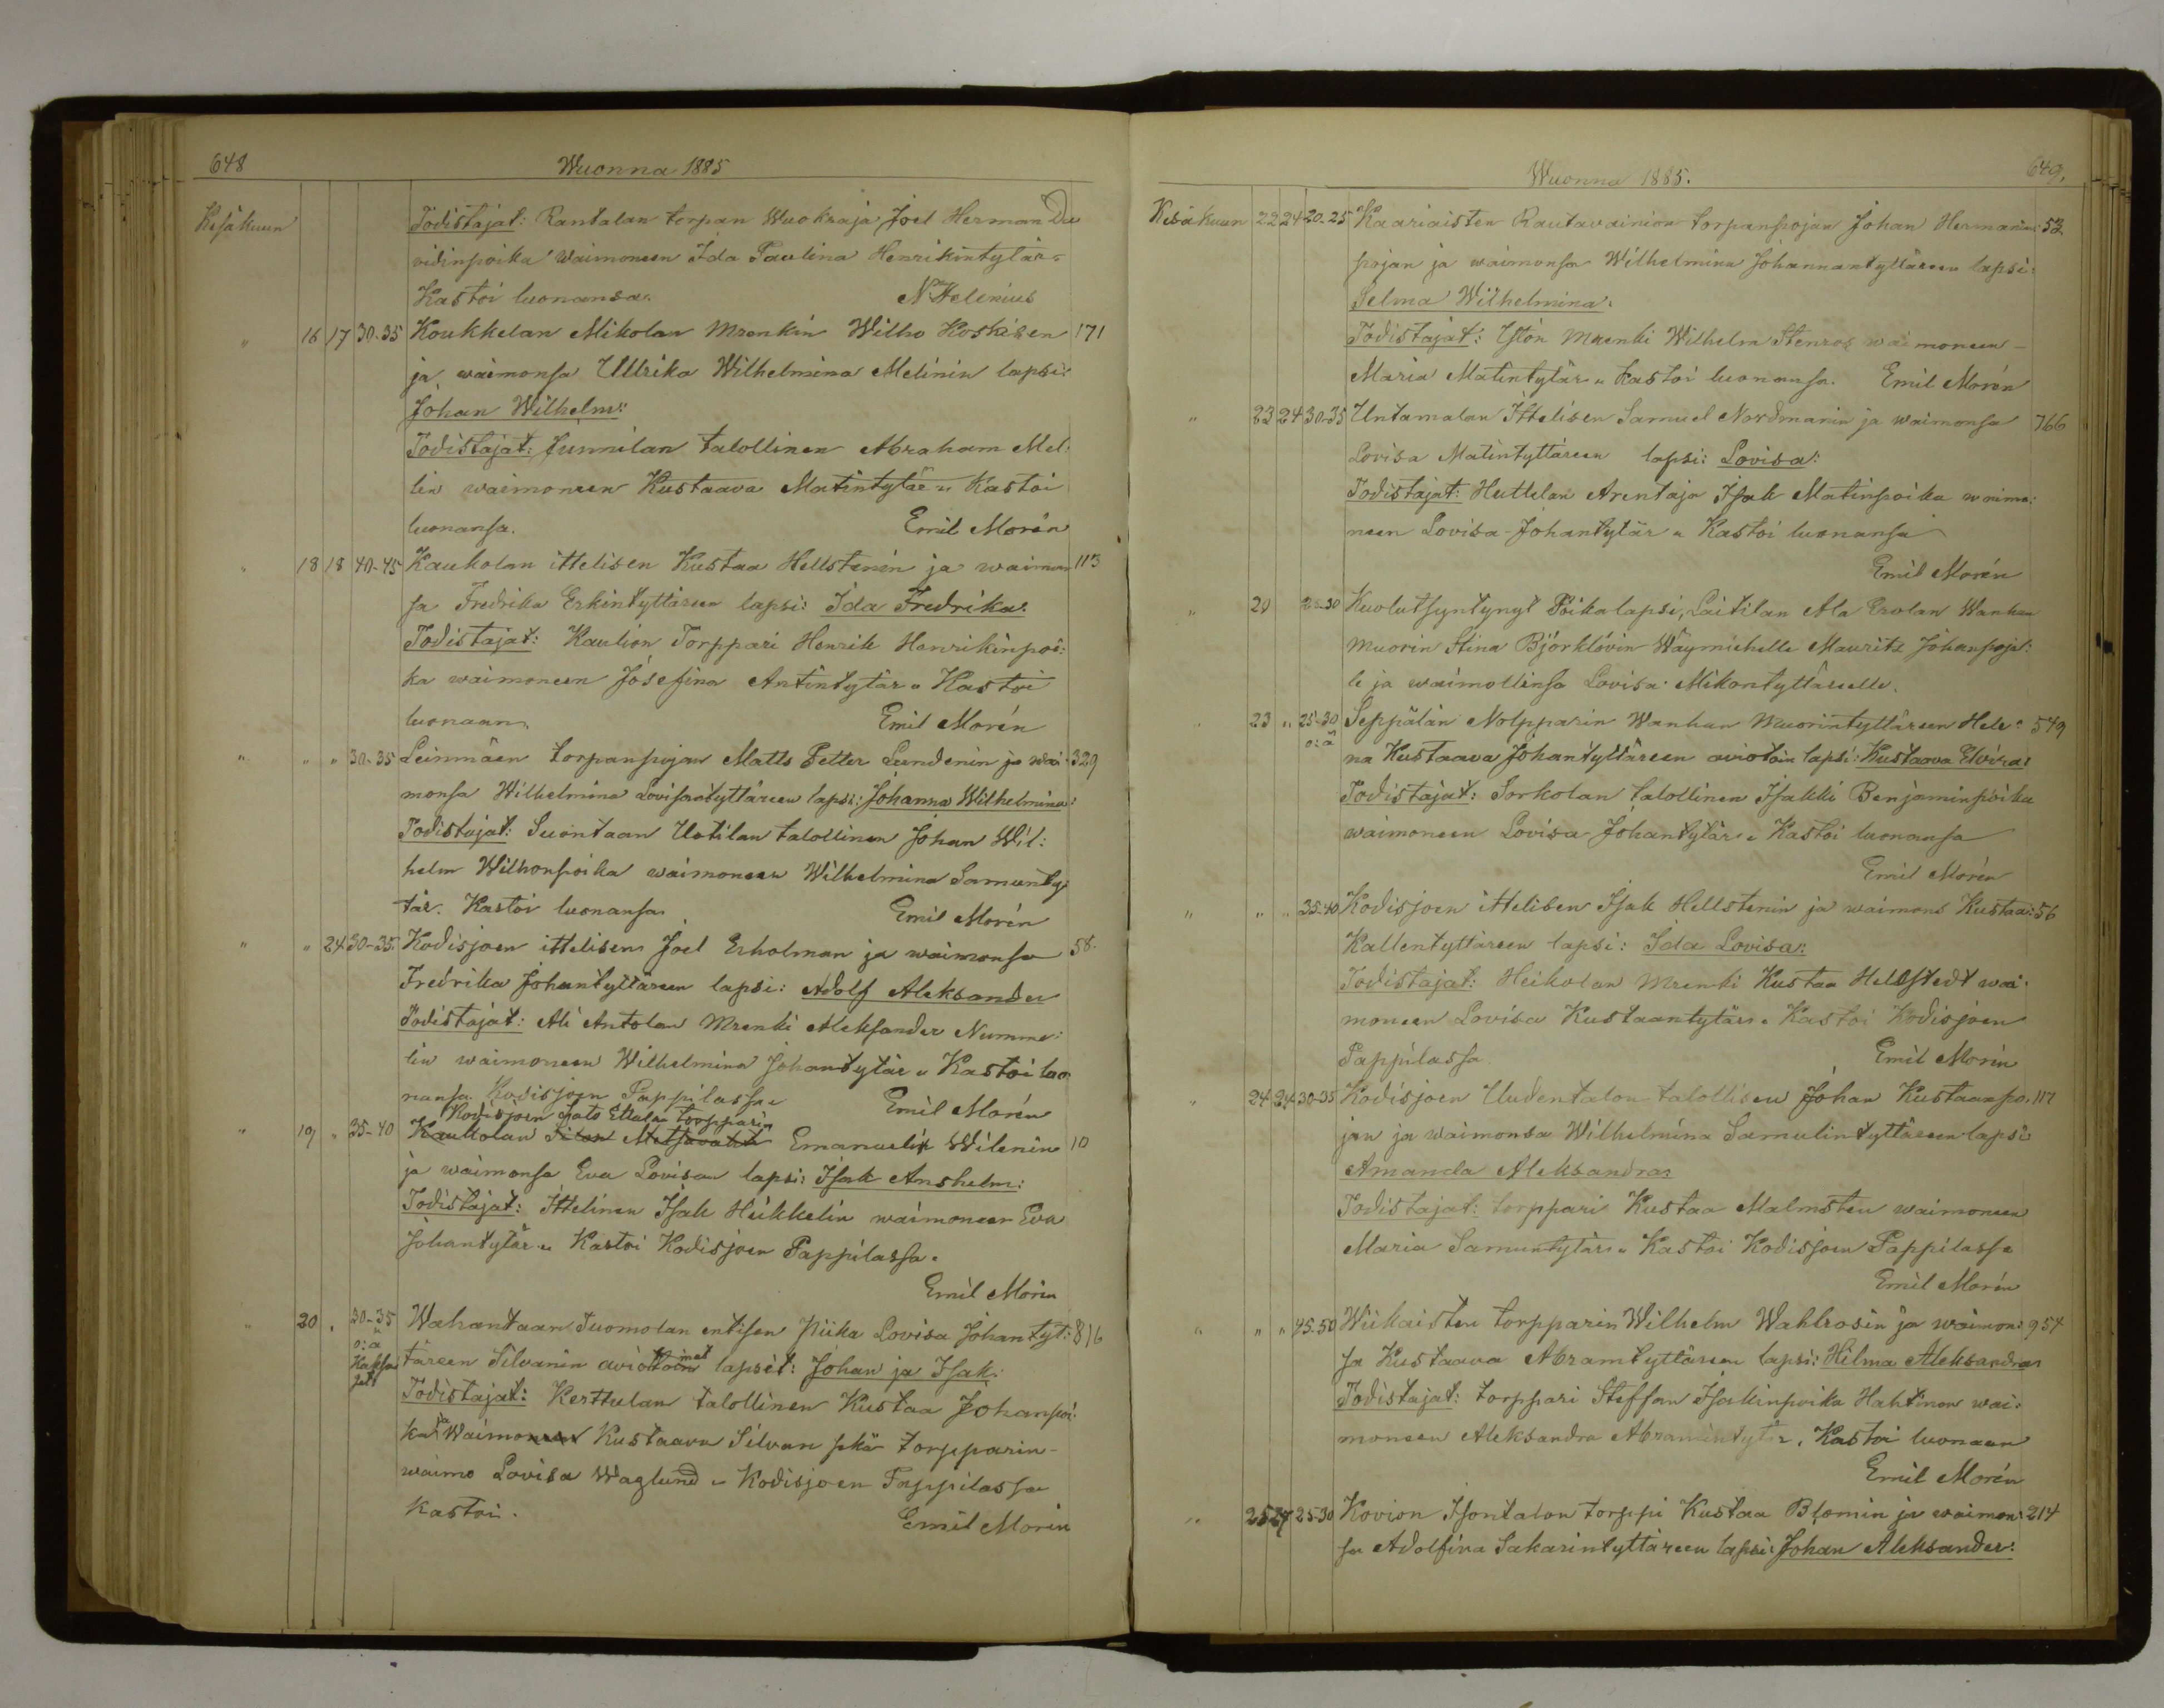 648
Wuonna 1885
Kesäkuun Todistajat: Rantalan torpan Wuokraja Joel Herman Da
vidinpoika waimoneen Ida Paulina Henrikintytär
Kastoi luonansa. N. Helenius
" 16 17 30-35 Koukkelan Mikolan Mrenkin Wilho Koskisen 171
ja waimonsa Ullrika Wilhelmina Melinin lapsi:
Johan Wilhelm:
Todistajat: talollinen Abraham Mel:
lin waimoneen Kustaava Matintytär " Kastoi
luonansa. Emil Morén
" 18 18 40-45 Kaukolan ittelisen Kustaa Hellstenin ja waimon 113
sa Fredrika Erkintyttäreen lapsi: Ida Fredrika:
Todistajat: Kaulion Torppari Henrik Henrikinpoi:
ka waimoneen Josefina Antintytär " Kastoi
luonaan. Emil Morén
" " " 30-35 Leinmäen torpanpojan Matts Petter Lundenin ja wai: 329
monsa Wilhelmina Lovisantyttäreen lapsi: Johanna Wilhelmina:
Todistajat: Suontaan Uotilan talollinen Johan Wil:
helm Wilhonpoika waimoneen Wilhelmina Samuunty:
tär. Kastoi luonansa. Emil Morén
" " 24 30-35 Kodisjoen ittelisen Joel Erholman ja waimonsa 58.
Fredrika Johantyttäreen lapsi: Adolf Aleksander
Todistajat: Ali Antolan Mrenki Aleksander Numme:
lin waimoneen Wilhelmina Johantytär " Kastoi luo
nansa Kodisjoen Pappilassa Emil Morén
Kodisjoen Etalan torpparin
" 19 " 35-40 Kaukolan Metsävahti Emanuelin Wilenin 10
ja waimonsa Eva Lovisan lapsi: Isak Anshelm:
Todistajat: Ittelinen Isak Heikkelin waimoneen Eva
Johantytär " Kastoi Kodisjoen Pappilassa.
Emil Morén
" 20 " 30-35 Wahantaan Tuomolan entisen Piika Lovisa Johantyt: 816
o: ä
Kaksoset täreen Silvanin aviottomat lapset: Johan ja Isak:
Todistajat: Kerttulan talollinen Kustaa Johanpoi:
ka ja Waimoneen Kustaava Silvan sekä torpparin
waimo Lovisa Waglund " Kodisjoen Pappilassa
kastoi. Emil Morén
649.
Wuonna 1885.
Kesäkuun 22 24 20-25 Kaariaisten Rautavainion torpanpojan Johan Hermanin: 52
pojan ja waimonsa Wilhelmina Johannantyttäreen lapsi:
Selma Wilhelmina:
Todistajat: Mrenki Wilhelm Stenros waimoneen
Maria Matintytär " Kastoi luonansa. Emil Morén
" 23 24 30-35 Untamalan Ittelisen Samuel Nordmanin ja waimonsa 766
Lovisa Matintyttäreen lapsi: Lovisa:
Todistajat: Huttelan Arentaja Isak Matinpoika waimo:
neen Lovisa Johantytär " Kastoi luonansa
Emil Morén
" 20 25-30 Kuolutsyntynyt Poikalapsi, Laitilan Ala Erolan Wanhan
Muorin Stina Björklövin Wäymiehelle Mauritz Johanpojal:
le ja waimollensa Lovisa Mikontyttärelle.
" 23 " 25-30 Seppälän Nolpparin Wanhan Muorintyttäreen Hele: 549
o: ä
na Kustaava Johantyttäreen aviotoin lapsi: Kustaava Elvira:
Todistajat: Sorkolan talollinen Isakki Benjaminpoika
waimoneen Lovisa Johantytär " Kastoi luonansa
Emil Morén
" " " 35-40 Kodisjoen ittelisen Isak Hellstenin ja waimons Kustaa: 56
Kallentyttäreen lapsi: Ida Lovisa:
Todistajat: Heikolan Mrenki Kustaa Hellstedt wai:
moneen Lovisa Kustaantytär " Kastoi Kodisjoen
Pappilassa. Emil Morén
" 24 24 30-35 Kodisjoen Uudentalon talollisen Johan Kustaanpo: 117
jan ja waimonsa Wilhelmina Samulintyttäreen lapsi
Amanda Aleksandra:
Todistajat: torppari Kustaa Malmsten waimoneen
Maria Samuntytär " Kastoi Kodisjoen Pappilassa
Emil Morén
" " " 45-50 Wiikaisten torpparin Wilhelm Wahlrosin ja waimon: 954
sa Kustaava Abramtyttäreen lapsi: Hilma Aleksandra:
Todistajat: torppari Steffan Isakinpoika Hahtinen wai:
moneen Aleksandra Abramintytär. Kastoi luonaan
Emil Morén
" 25 27 25-30 Kovion Isontalon torppi Kustaa Blomin ja waimon: 214
sa Adolfina Sakarintyttäreen lapsi: Johan Aleksander: